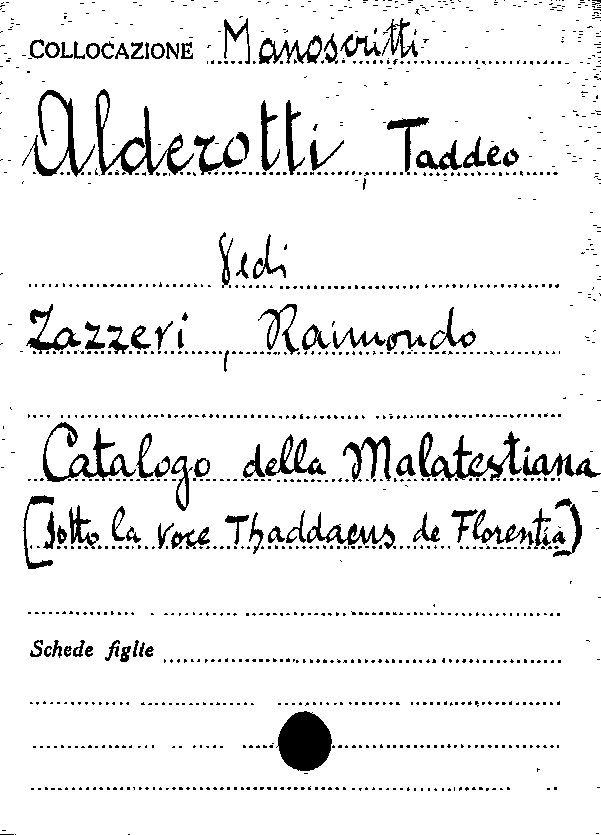 COLLOCAZIONE Manoscritti
Alderotti, Taddeo
Vedi
Zazzeri, Raimondo
Catalogo della Malatestiana
(Sotto la voce Thaddaeus de Florentia)
Schede figlie